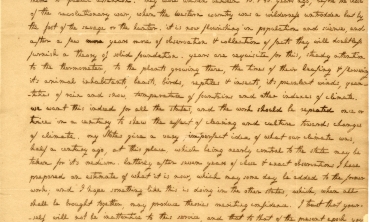 of the revolutionary war, when the Western country was a wilderness untrodden but by
the feet of the savage or the hunter. it is now flourishing in population and science, and
after a few more years more of observation & collection of facts they will doubtless
furnish a theory of solid foundation. years are requisite for this, steady attention
to the thermometer, to the plants growing there, the times of their leafing & flowering
it's animal inhabitants beasts, birds, reptiles & insects, it's prevalent winds, quan-
tities of rain and snow, temperature of fountains and other indexes of climate.
we want this indeed for all the states, and the work should be repeated once or
twice in a century to show the effect of clearing and culture towards changes
of climate. my Notes give a very imperfect idea of what our climate was,
half a century ago, at this place, which being nearly central to the state may be
taken for it's medium. latterly after seven years of close & exact observation I have
prepared an estimate of what it is now, which may some day be added to the former
work, and I hope something like this is doing in the other states, which when all
shall be brought together may produce theories meriting confidence. I trust that your-
self will not be inattentive to this service, and that to that of the present epoch you